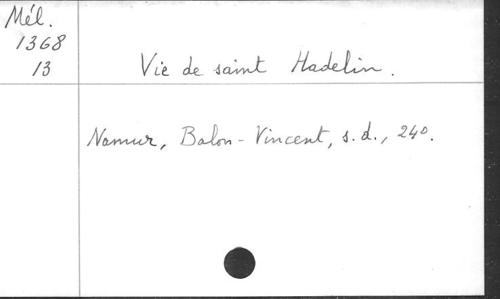 Mél.
1368
13
Vie de saint Hadelin.
Namur, Balon-Vincent, s.d., 24°.